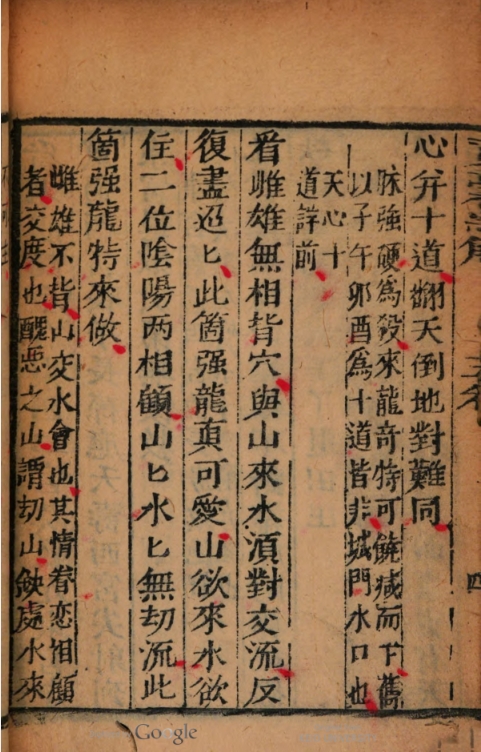 心弁十道翻天倒地對難同
脉強硬為殺來龍奇特可饒減而下舊
以子午卯酉為十道皆非城門水口也
天心十
道詳前
看雌雄無相背穴與山來水須對交流反
復盡迢匕此箇强龍真可愛山欲來水欲
住二位陰陽两相顧山匕水匕無刧流此
箇强龍特來做
雌雄不背山交水會也其情眷恋相顧
者交度也醜恶之山謂刧山缺處水來
Google